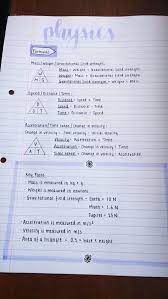 physics
Formulas
Mass / Weight / Gravitational field strength.
Mass = Weight ÷ Gravitational field strength
Weight = Mass × Gravitational field strength
Gravitational field strength = Weight ÷ Mass
Speed / Distance / Time
Distance = Speed × Time
Speed = Distance ÷ Time
Time = Distance ÷ Speed
Acceleration / Time taken / Change in velocity
Change in velocity = Final velocity - Initial velocity
Acceleration = Change in Velocity ÷ Time
Time taken = Change in Velocity ÷ Acceleration
Key Facts
- Mass is measured in kg / g
- Weight is measured in newtons
- Gravitational field strength - Earth = 10 N
Moon = 1.6 N
Jupiter = 25 N
- Acceleration is measured in m/s²
- Velocity is measured in m/s
- Area of a triangle = 0.5 × base × height